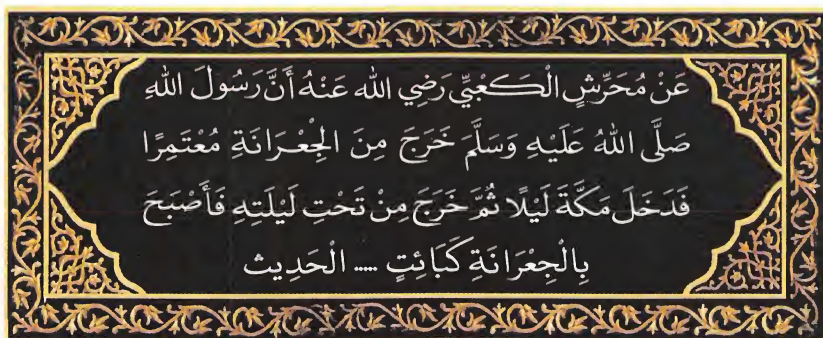 عَنْ مُحَرِّشٍ الْكَعْبِيِّ رَضِي الله عَنْهُ أَنَّ رَسُولَ اللهِ
صَلَّى اللهُ عَلَيْهِ وَسَلَّم خَرَجَ مِنَ الْجِعْرَانَةِ مُعْتَمِرًا
فَدَخَلَ مَكَّةَ لَيْلًا ثُمَّ خَرَجَ مِنْ تَحْتِ لَيْلَتِهِ فَأَصْبَحَ
بِالْجِعْرَانَةِ كَبَائِتٍ ..... الْحَدِيث